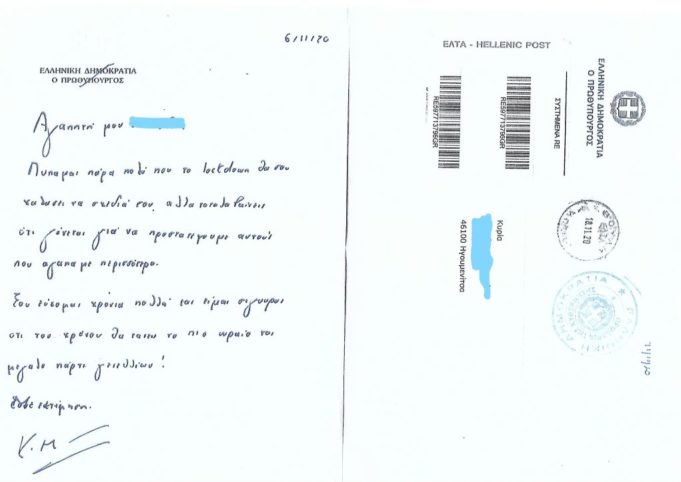 6/11/20
ΕΛΛΗΝΙΚΗ ΔΗΜΟΚΡΑΤΙΑ
Ο ΠΡΩΘΥΠΟΥΡΓΟΣ
Αγαπητή μου
Λυπάμαι πάρα πολύ που το lockdown θα σου
χαλάσει τα σχέδιά σου, αλλά καταλαβαίνεις
ότι γίνεται για να προστατέψουμε αυτούς
που αγαπάμε περισσότερο.
Σου εύχομαι χρόνια πολλά και είμαι σίγουρος
ότι του χρόνου θα κάνεις το πιο ωραίο και
μεγάλο πάρτι γενεθλίων!
εκτίμηση.
Κ.Μ
ΕΛΤΑ - HELLENIC POST
RE597713795GR
RE597713795GR
ΣΥΣΤΗΜΕΝΑ RE
ΕΛΛΗΝΙΚΗ ΔΗΜΟΚΡΑΤΙΑ
Ο ΠΡΩΘΥΠΟΥΡΓΟΣ
Κυρία
46100 Ηγουμενίτσα
10.11.20
ΕΛΛΗΝΙΚΗ ΔΗΜΟΚΡΑΤΙΑ